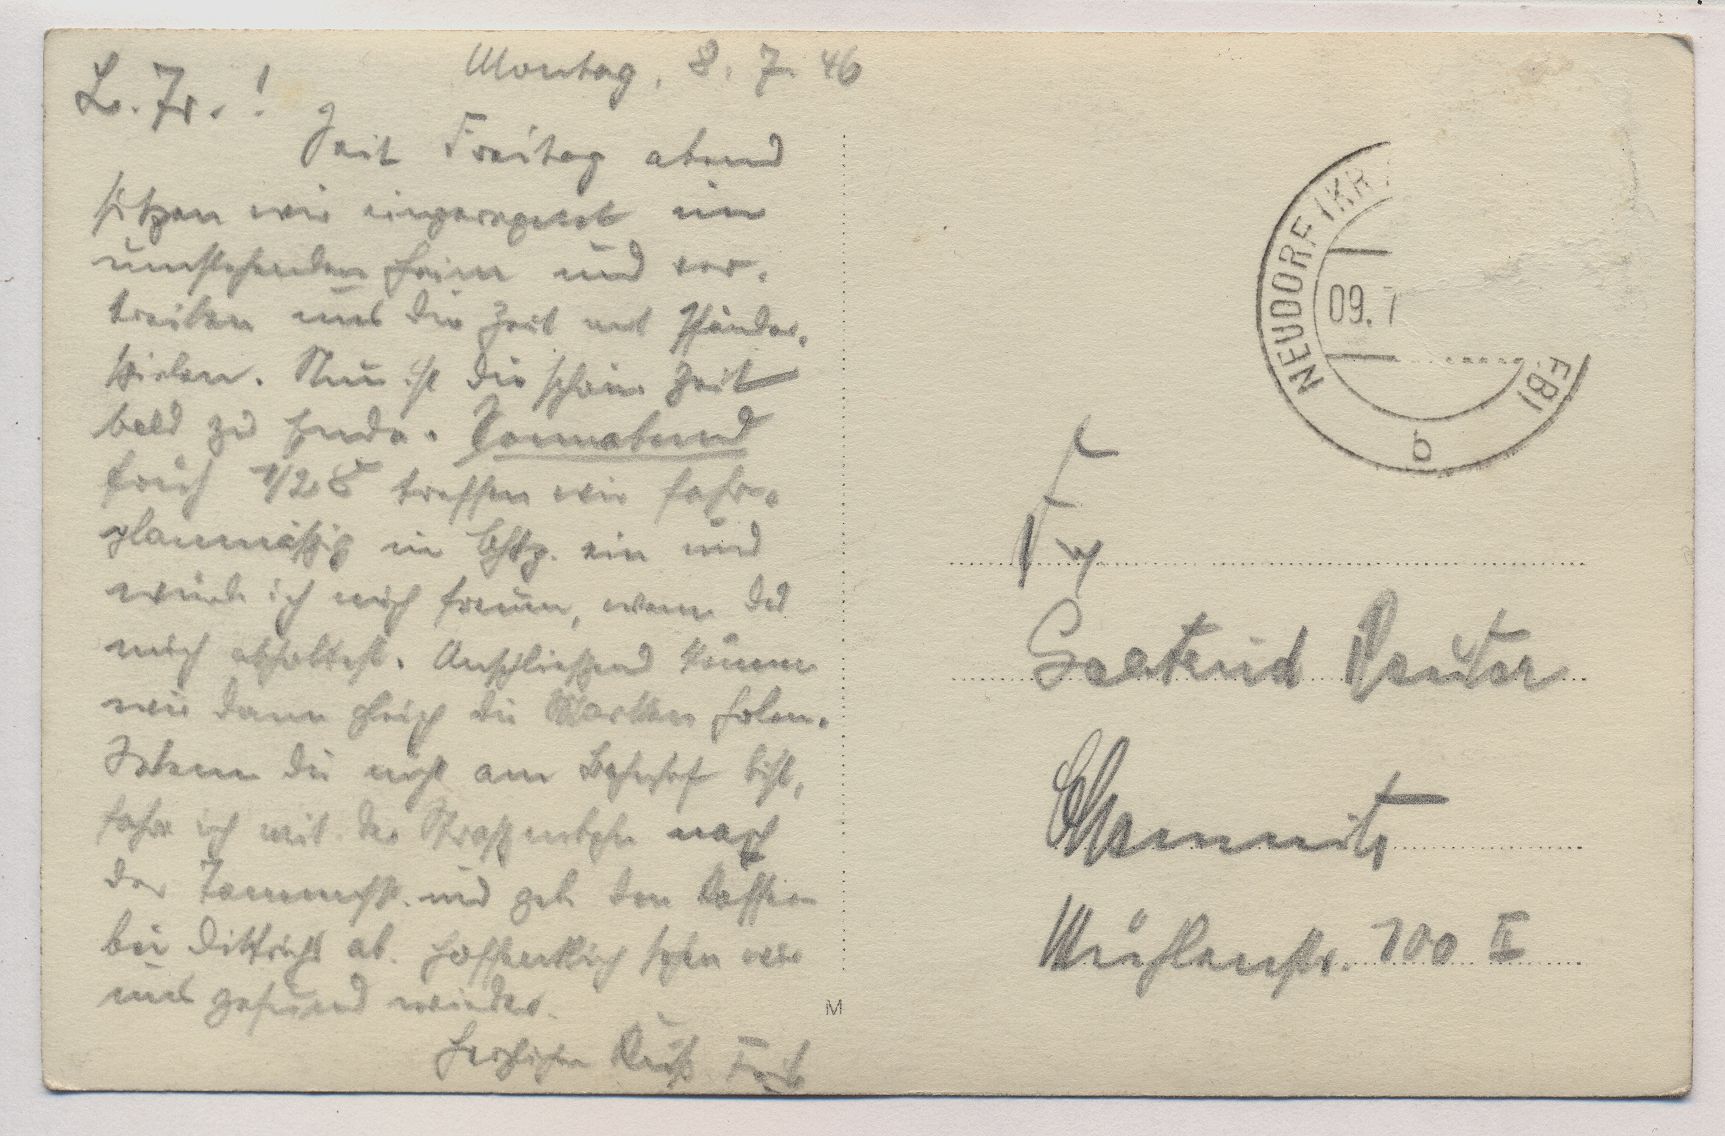 Montag, 8. 7. 46
L. Fr.!
Seit Freitag abend
sitzen wir eingeregnet im
umstehenden Heim und ver-
treiben uns die Zeit mit Pfänder-
spielen. Nun ist die schöne Zeit
bald zu Ende. Sonnabend
früh 1/2 8 treffen wir fahr-
planmäßig in Chtz. ein und
würde ich mich freuen, wenn Du
mich abholtest. Anschließend können
wir dann gleich die Marken holen.
Wenn Du nicht am Bahnhof bist,
fahr ich mit der nach
der und geb den
bei Dittrichs ab. Hoffentlich sehen wir
uns gesund wieder.
Herzlichen Kuß
NEUDORF (KR
09.7
EBI
b
Frl
Gertrud
Chemnitz
Mühlenstr. 100 II
M